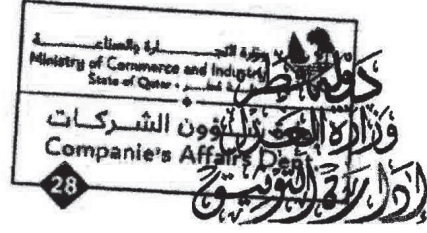 وزارة التجـــــارة والصناعـــة
Ministry of Commerce and Industry
State of Qatar - دولة قطـــر
شؤون الشركات
Companie's Affairs Dept
28
دولة قطر
وزارة العدل
إدارة التوثيق